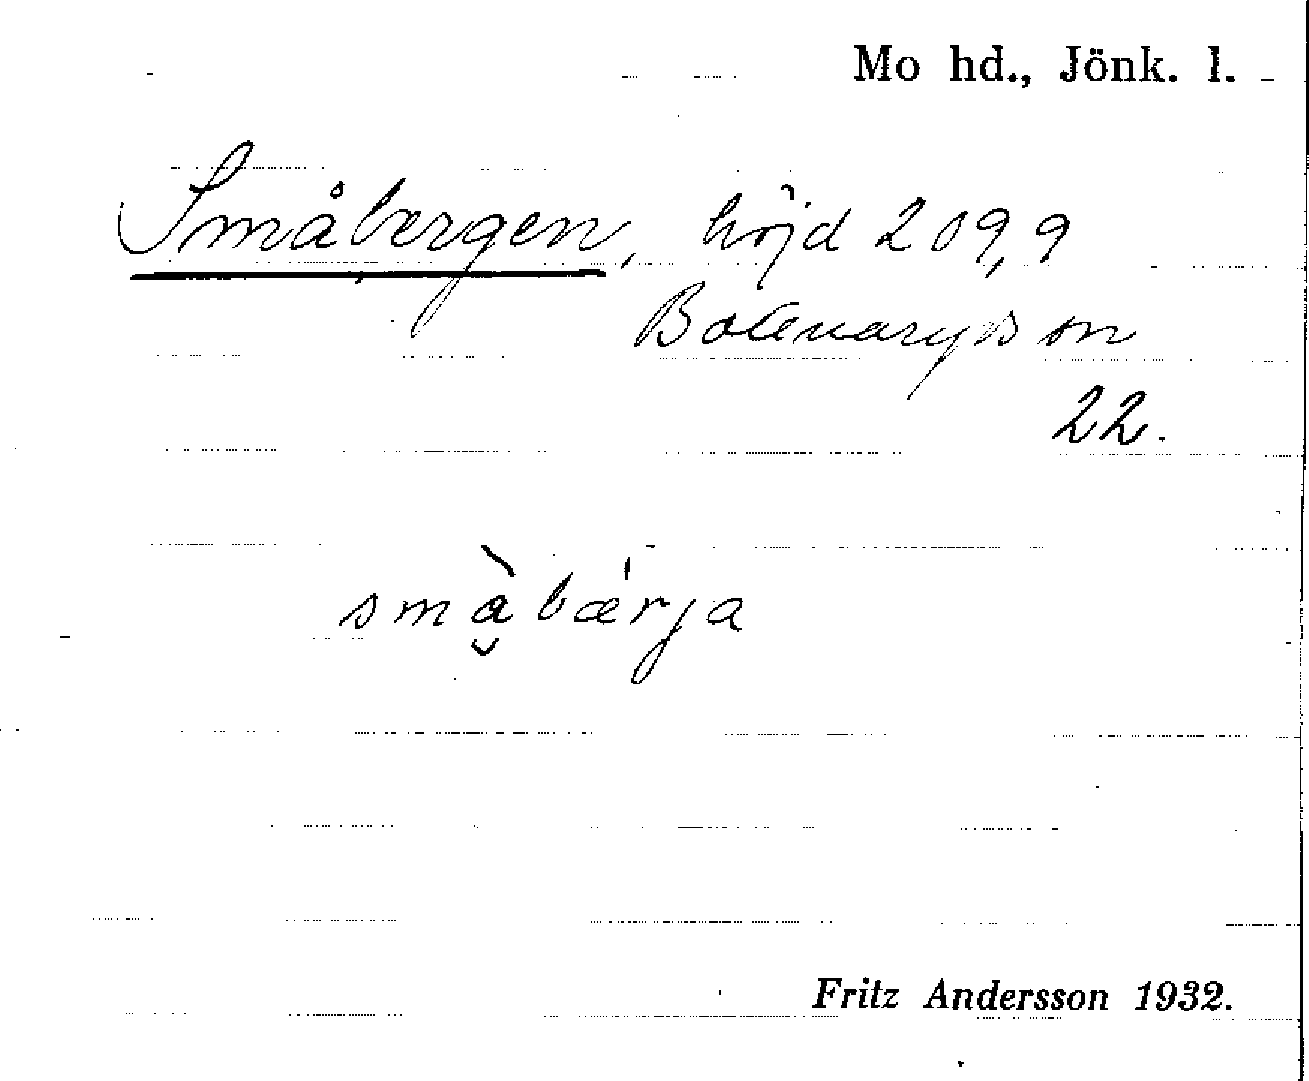 Mo hd., Jönk. l.
Småbergen, höjd 209,9
on
22.
smà̮bǽrja
Fritz Andersson 1932.